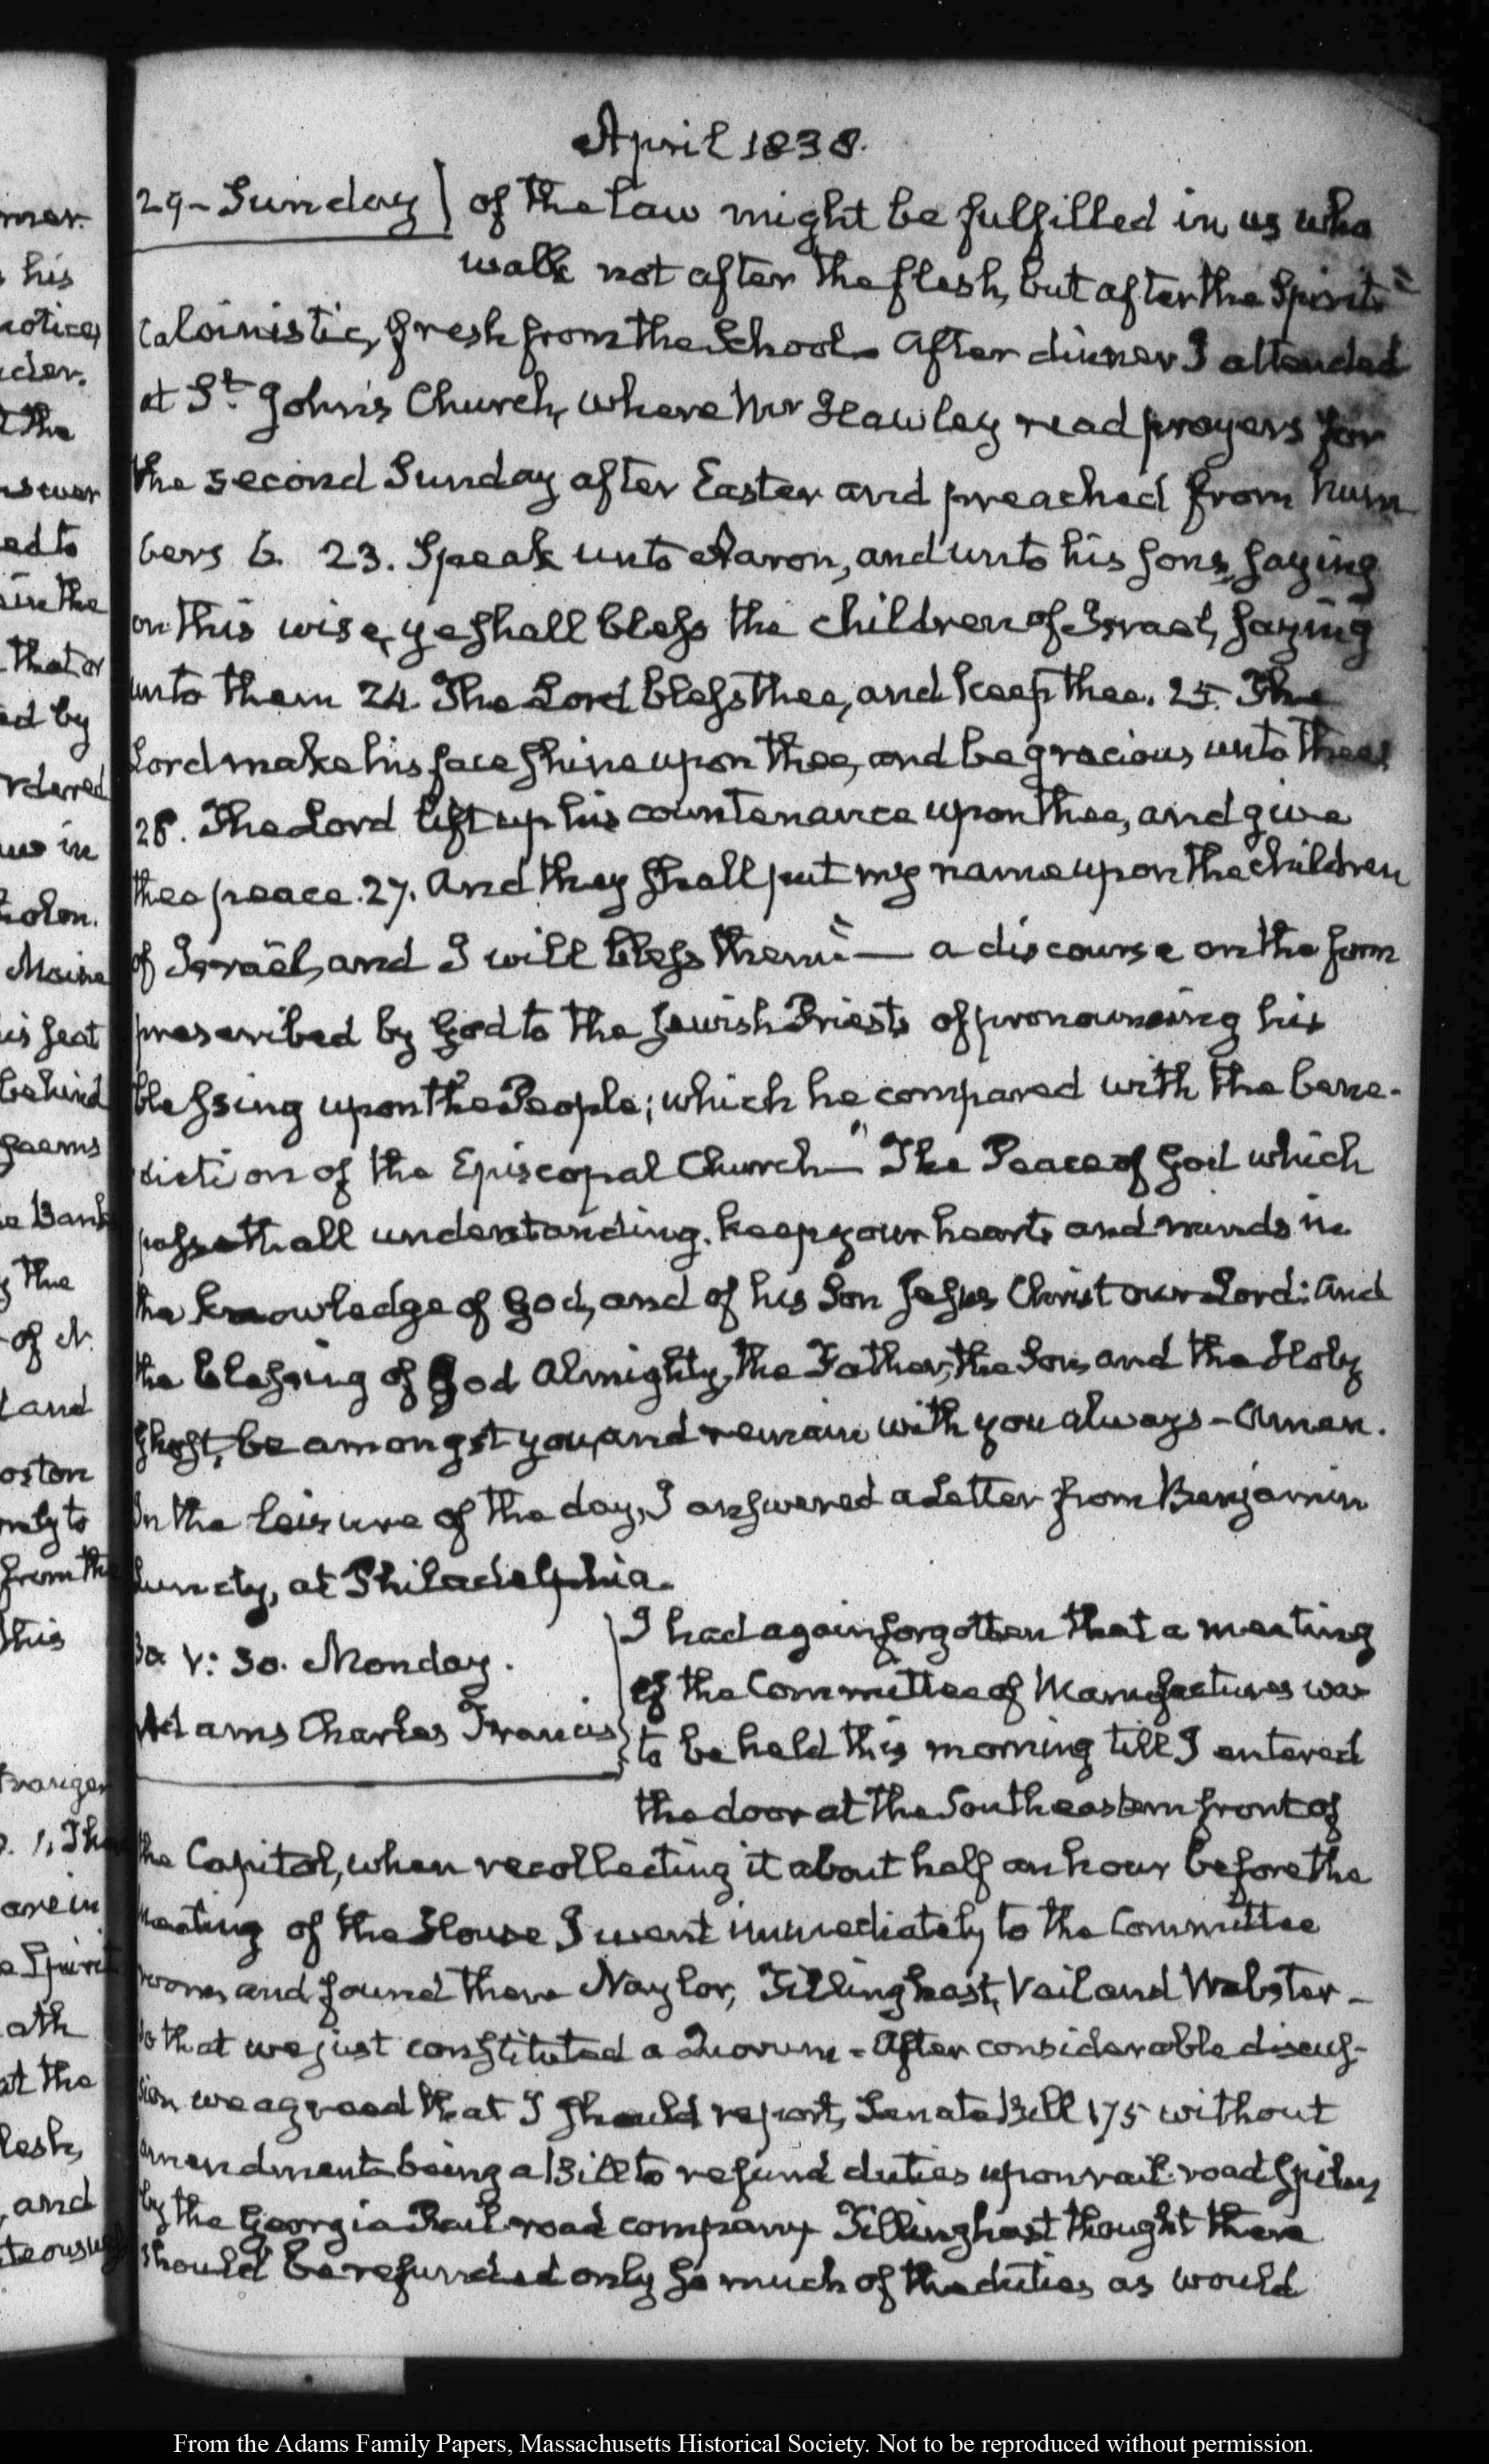 April 1838.
29 - Sunday } of the Law might be fulfilled in us who
walk not after the flesh, but after the Spirit"
Calvinistic, fresh from the School - After dinner I attended
at St. John's Church, where Mr Hawley read prayers for
the second Sunday after Easter and preached from Num
bers 6. 23. Speak unto Aaron, and unto his sons, saying
on this wise, ye shall bless the children of Israel, saying
unto them 24. The Lord bless thee, and keep thee. 25. The
Lord make his face shine upon thee, and be gracious unto thee
26. The Lord lift up his countenance upon thee, and give
thee peace. 27. And they shall put my name upon the children
of Israël, and I will bless them" — a discourse on the form
prescribed by God to the Jewish Priests of pronouncing his
blessing upon the People; which he compared with the bene-
diction of the Episcopal Church — "The Peace of God which
passeth all understanding, keep your hearts and minds in
the knowledge of God, and of his Son Jesus Christ our Lord: And
the blessing of God Almighty, the Father, the Son, and the Holy
Ghost, be amongst you, and remain with you always - Amen.
In the leisure of the day, I answered a Letter from Benjamin
Lundy, at Philadelphia.
30. V: 30. Monday.
Adams Charles Francis
I had again forgotten that a meeting
of the Committee of Manufactures was
to be held this morning till I entered
the door at the Southeastern front of
the Capitol, when recollecting it about half an hour before the
meeting of the House I went immediately to the Committee
room, and found there Naylor, Tillinghast, Vail and Webster -
so that we just constituted a Quorum - After considerable discus-
sion we agreed that I should report, Senate Bill 175 without
amendment being a Bill to refund duties upon rail-road
by the Georgia Rail road company Tillinghast thought there
should be refunded only so much of the duties as would
mer.
his
notices
der.
the
nswer
ed to
in the
that or
ed by
rdered
us in
olon.
Maine
his seat
behind
seems
e Bank
the
of N.
and
oston
nly to
from the
this
1, The
are in
e Spirit
ath
at the
lesh,
, and
From the Adams Family Papers, Massachusetts Historical Society. Not to be reproduced without permission.